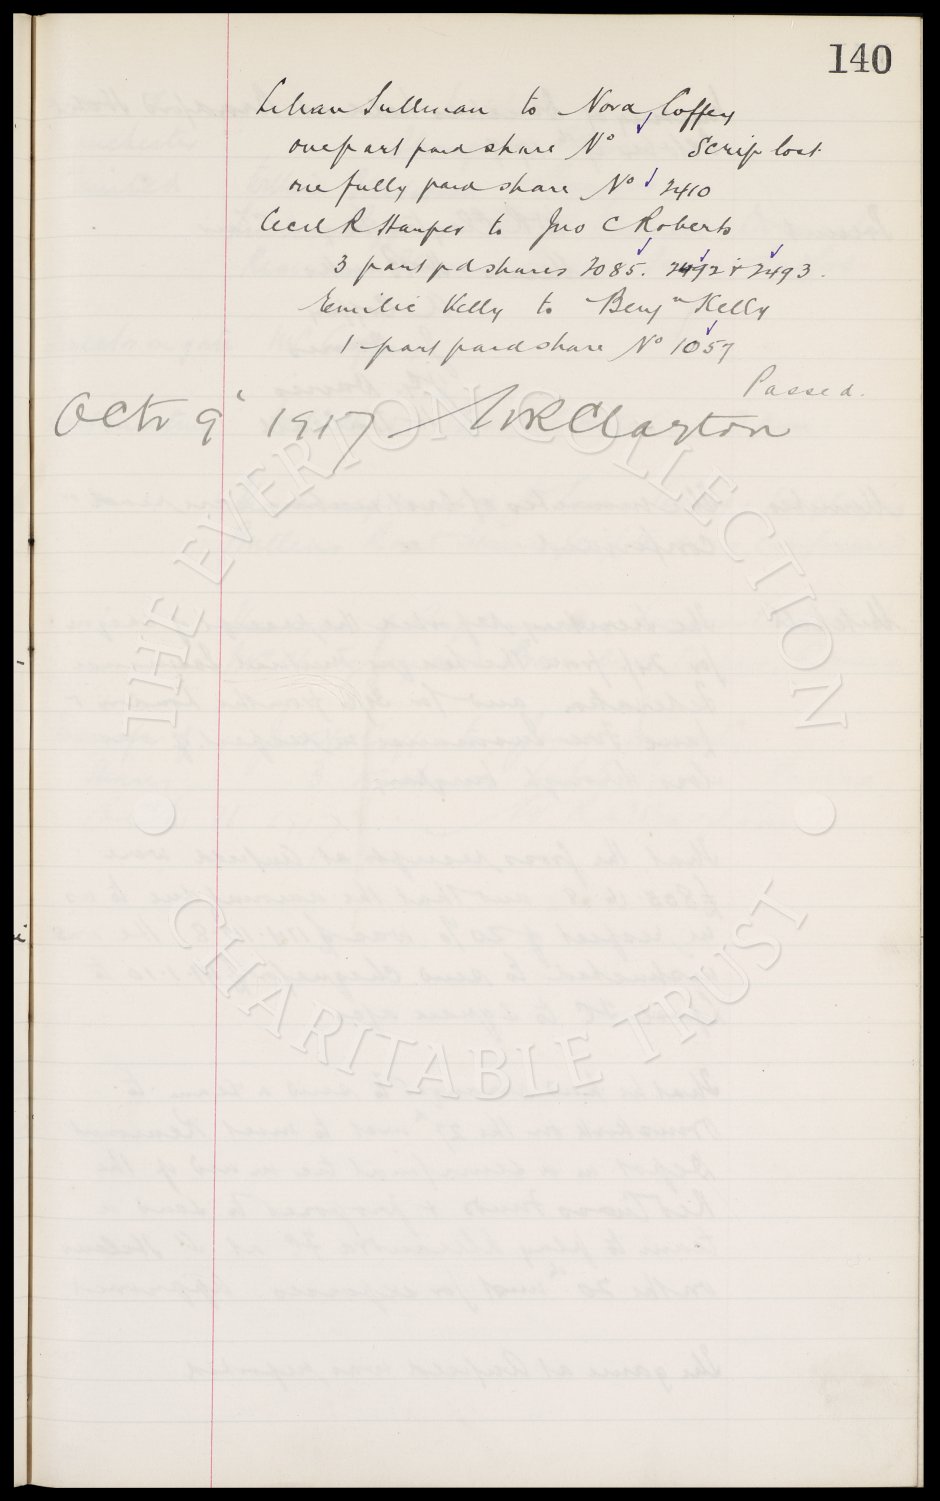 140
Lilian Sullivan to Nora Coffey
one part paid share No Scrip lost
one fully paid share No 2410
Cecil R Harper to Jno C Roberts
3 part pd shares 2085. 2492 & 2493.
Emilie Kelly to Benjn Kelly
1 part paid share No 1057
Passed.
Octr 9' 1917 WRClayton
THE EVERTON COLLECTION
CHARITABLE TRUST